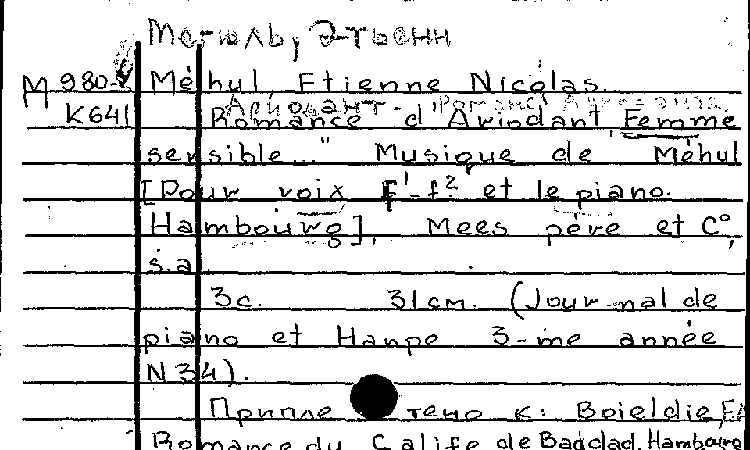 Мегюль, Этьенн
М 980-
К641
Méhul, Etienne Nicolas.
Ариодант -
Romance d'Ariodant, Femme
sensible..." Musique de Méhul
[Pour voix f¹-f² et le piano.
Hambourg], Mees père et C°,
s.a
3с. 31см. (Journal de
piano et Harpe 3-me année
N 34).
Припле тено к: Boieldie,
Romance du Calife de Bagdad. Hambourg